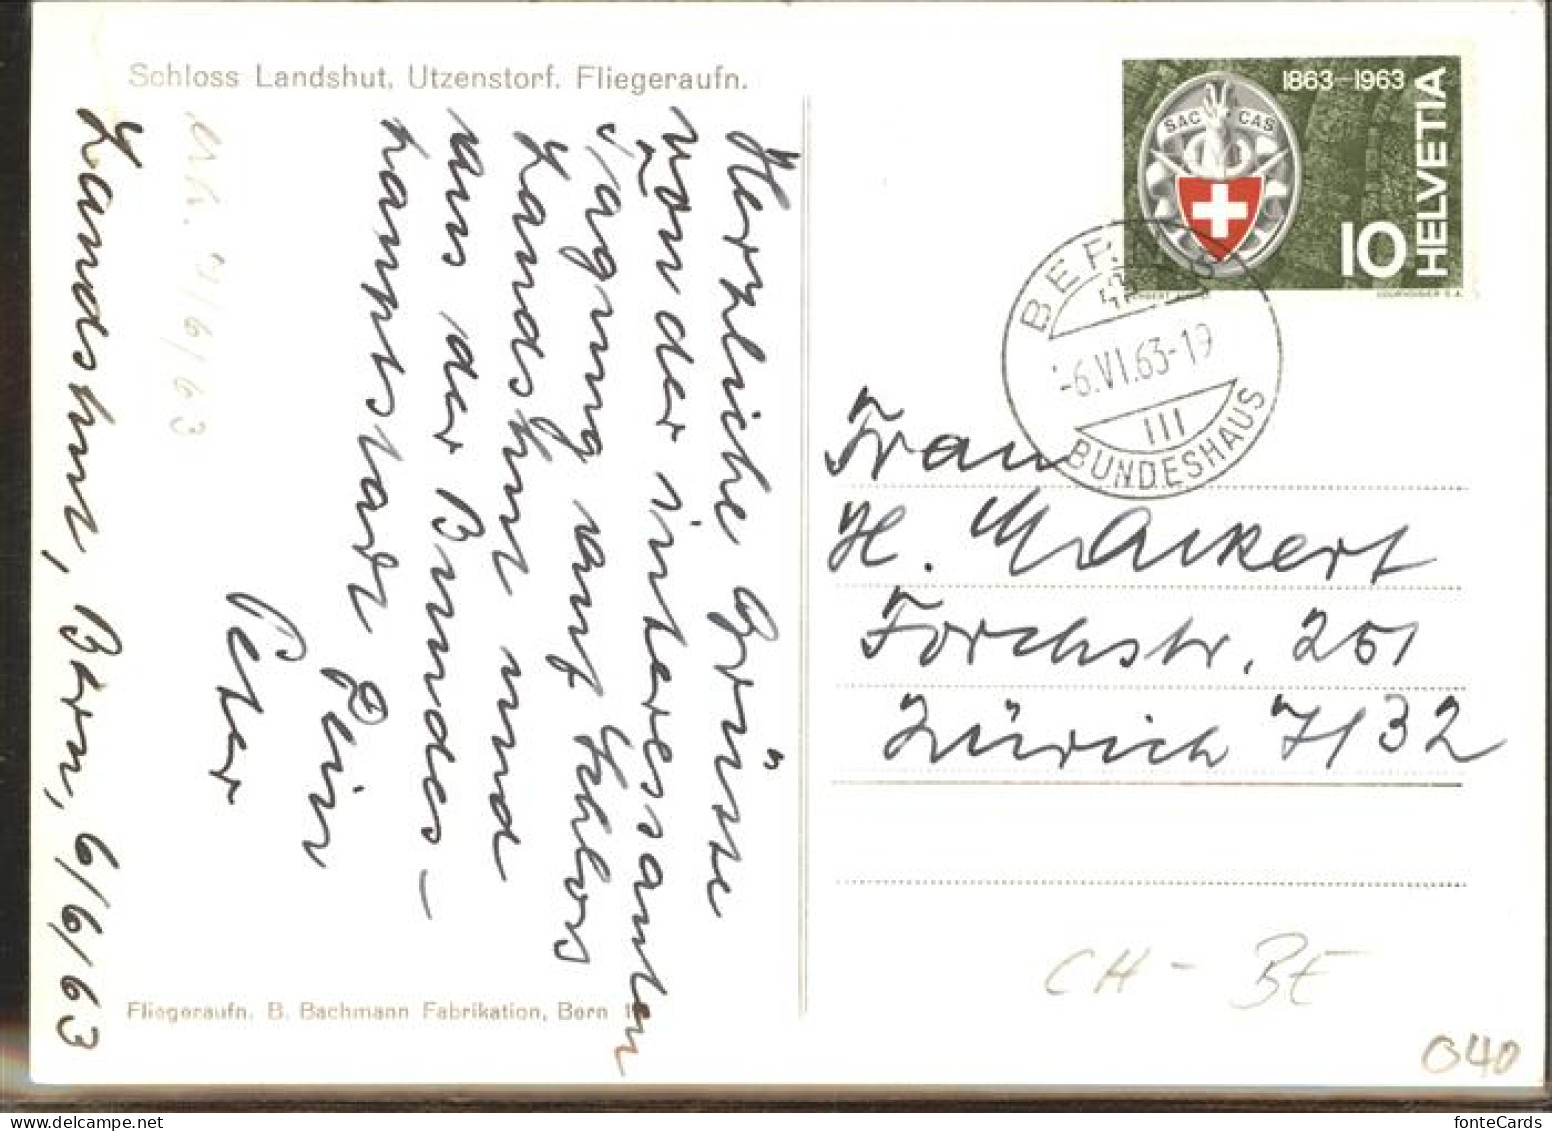 Schloss Landshut, Utzenstorf. Fliegeraufn.
Landshut, Bern, 6/6/63
Herzliche Grüsse
von der interessanten
Tagung auf Schloss
Landshut und
aus der Bundes-
hauptstadt Dein
Peter
erh. 7/6/63
Fliegeraufn. B. Bachmann Fabrikation, Bern
1863-1963
HELVETIA
SAC CAS
10
BERN
-6.VI.63-19
III
BUNDESHAUS
Frau
H. Mackert
Forchstr. 251
Zürich 7/32
CH - BE
040
fonteCards